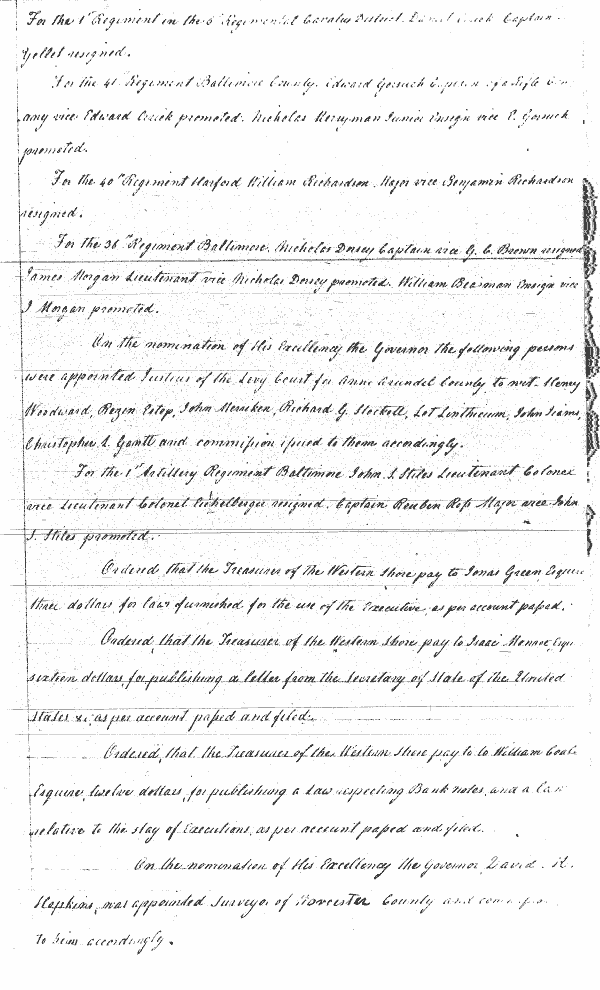 For the 1st Regiment in the Regimental Cavalry District. Captain
resigned.
For the 41 Regiment Baltimore County. Edward Gorsuch Captain of a Rifle Com
any vice Edward promoted. Nicholas Merryman Junior Ensign vice E. Gorsuch
promoted.
For the 40th Regiment Harford William Richardson Major vice Benjamin Richardson
resigned.
For the 36th Regiment Baltimore. Nicholas Dorsey Captain vice G. C. Brown resigned
James Morgan Lieutenant vice Nicholas Dorsey promoted. William Beasman Ensign vice
J Morgan promoted.
On the nomination of His Excellency the Governor the following persons
were appointed Justices of the Levy Court for Anne Arundel County to wit Henry
Woodward, Rezin Estep, John Merriken, Richard G. Stockett, Lot Linthicum, John Iiams,
Christopher L. Gantt and commission issued to them accordingly.
For the 1st Artillery Regiment Baltimore John S. Stiles Lieutenant Colonel
vice Lieutenant Colonel resigned. Captain Reuben Ross Major vice John
S. Stiles promoted.
Ordered, that the Treasurer of the Western Shore pay to Jonas Green Esquire
three dollars for laws furnished for the use of the Executive, as per account passed.
Ordered, that the Treasurer of the Western Shore pay to Isaac Monroe Esqu
sixteen dollars, for publishing a letter from the Secretary of State of the United
States &c, as per account passed and filed.
Ordered, that the Treasurer of the Western Shore pay to to William
Esquire, twelve dollars, for publishing a Law respecting Bank notes, and a law
relative to the stay of Executions, as per account passed and filed.
On the nomination of His Excellency the Governor, David H.
Hopkins, was appointed Surveyor of Worcester County and
to him accordingly.